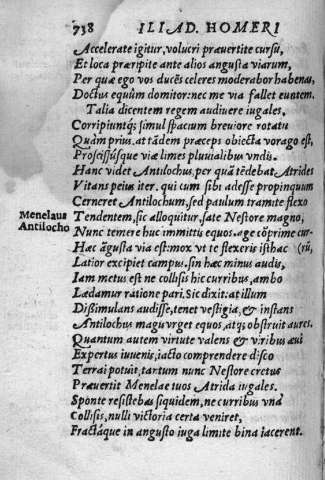 738 ILIAD. HOMERI
Accelerate igitur, volucri prævertite cursu,
Et loca præripite ante alios angusta viarum,
Per quæ ego vos ducēs celeres moderabor habenas,
Doctus equûm domitor: nec me via fallet euntem.
Talia dicentem regem audivere iugales,
Corripiuntq; simul spacium breviore rotatu
Quàm prius. at tādem præceps obiecta vorago est,
Proscissúsque viæ limes pluvialibus vndis.
Hanc videt Antilochus, per quā tēdebat Atrides
Vitans peius iter. qui cum sibi adesse propinquum
Cerneret Antilochum, sed paulum tramite flexo
Menelaus Tendentem, sic alloquitur. sate Nestore magno,
Antilocho Nunc temere huc immittis equos. age cōprime cur-
Hac āgusta via est: mox vt te flexeris isthac (rū,
Latior excipiet campus. sin hac minus audis,
Iam metus est ne collisis hic curribus, ambo
Lædamur ratione pari. Sic dixit: at illum
Dissimulans audisse, tenet vestigia, & instans
Antilochus magis vrget equos, atq; obstruit aures.
Quantum autem virtute valens & viribus aui
Expertus iuuenis, iacto comprendere disco
Terrai potuit, tantum nunc Nestore cretus
Præuertit Menelae tuos Atrida iugales.
Sponte resistebas siquidem, ne curribus vnà
Collisis, nulli victoria certa veniret,
Fractáque in angusto iuga limite bina iacerent.